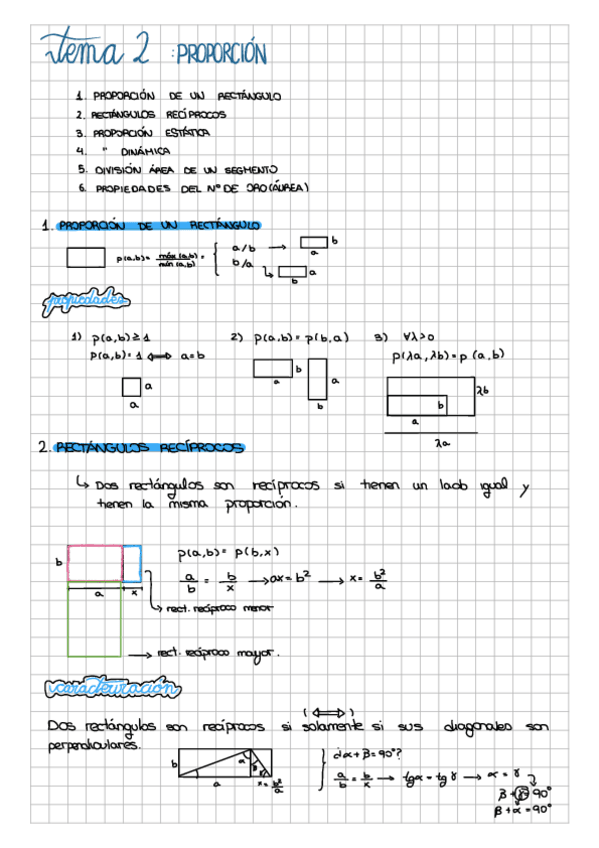 Tema 2 : PROPORCIÓN
1. PROPORCIÓN DE UN RECTÁNGULO
2. RECTÁNGULOS RECÍPROCOS
3. PROPORCIÓN ESTÁTICA
4. " DINÁMICA
5. DIVISIÓN ÁREA DE UN SEGMENTO
6. PROPIEDADES DEL Nº DE ORO (ÁUREA)
1. PROPORCIÓN DE UN RECTÁNGULO
p(a,b)= máx (a,b) / mín (a,b) = { a/b → b a
b/a ↳ a b
propiedades
1) p(a,b) ≥ 1 2) p(a,b) = p(b,a) 3) ∀λ>0
p(a,b) = 1 ⟺ a=b p(λa, λb) = p (a,b)
a b λb
a a a b
b a
λa
2. RECTÁNGULOS RECÍPROCOS
↳ Dos rectángulos son recíprocos si tienen un lado igual y
tienen la misma proporción.
p(a,b) = p(b,x)
b a/b = b/x → ax = b² → x = b²/a
a x
↳ rect. recíproco menor
→ rect. recíproco mayor.
caracterización
(⟺)
Dos rectángulos son recíprocos si solamente si sus diagonales son
perpendiculares.
¿α + β = 90°?
b α β γ a/b = b/x → tg α = tg γ → α = γ
a x = b²/a
β + γ = 90°
β + α = 90°